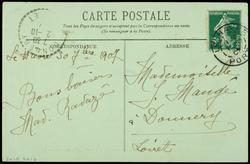 CARTE POSTALE
Tous les pays étrangers n'acceptent pas la Correspondance au recto.
(Se renseigner à la Poste)
CORRESPONDANCE
ADRESSE
Le Havre 30 7bre 1907
Bons baisers
Mad.
Mademoiselle
S. Mauge
Donnery
Loiret